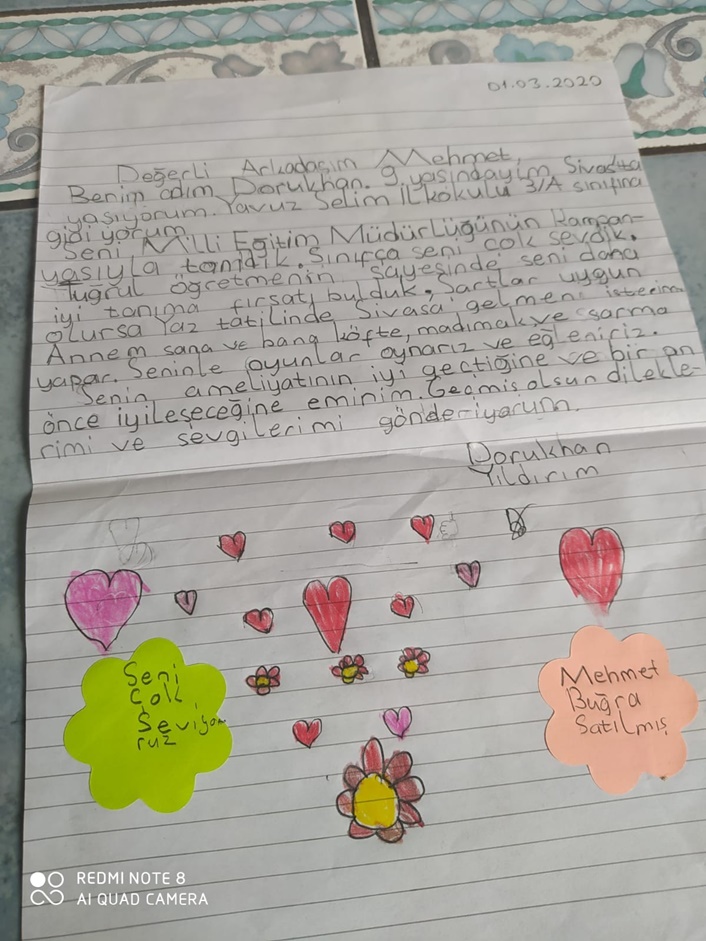 01.03.2020
Değerli Arkadaşım Mehmet,
Benim adım Dorukhan. 9 yaşındayım Sivasta
yaşıyorum. Yavuz Selim İlkokulu 3/A sınıfına
gidiyorum.
Seni Milli Eğitim Müdürlüğünün Kampan-
yasıyla tanıdık. Sınıfça seni çok sevdik.
Tuğrul öğretmenin sayesinde seni daha
iyi tanıma fırsatı bulduk. Şartlar uygun
olursa Yaz tatilinde Sivasa gelmeni isterim
Annem sana ve bana köfte, madımak ve sarma
yapar. Seninle oyunlar oynarız ve eğleniriz.
Senin ameliyatının iyi geçtiğine ve bir an
önce iyileşeceğine eminim. Geçmiş olsun dilekle-
rimi ve sevgilerimi gönderiyorum.
Dorukhan
Yıldırım
Seni
Çok
Seviyo
ruz
Mehmet
Buğra
Satılmış
REDMI NOTE 8
AI QUAD CAMERA